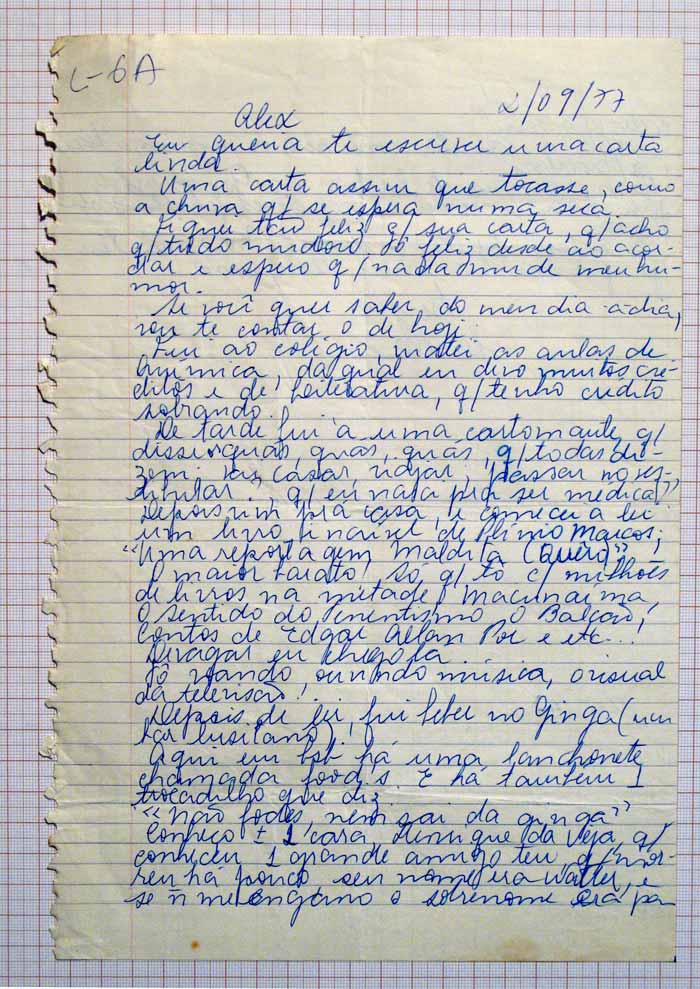 L-6A
2/09/77
Alex
Eu queria te escrever uma carta
linda.
Uma carta assim que tocasse, como
a chuva q/ se espera numa seca.
Fiquei tão feliz q/ sua carta, q/ acho
q/ tudo mudou. Tô feliz desde ao acor-
dar e espero q/ nada mude meu hu-
mor.
Se você quer saber do meu dia-a-dia,
vou te contar o de hoje:
Fui ao colégio, matei as aulas de
química, da qual eu devo muitos cré-
ditos e de literatura, q/ tenho crédito
sobrando.
De tarde fui à uma cartomante q/
disse q/ quás, quás, quás, q/ todas di-
zem: vai casar, viajar, passar no ves-
tibular..., q/ eu nasci pra ser médica!"
Depois vim pra casa, e comecei a ler
um livro incrível de Plínio Marcos;
"Uma reportagem maldita (Querô)",
O maior barato! Só q/ tô c/ milhões
de livros na metade! Macunaíma,
O sentido do , O Balcão,
Contos de Edgar Allan Poe e etc...!
Devagar eu chego lá.
Tô ouvindo música, o visual
da televisão!
Depois de ler, fui beber no Ginga (um
bar lusitano).
Aqui em bsb há uma lanchonete
chamada food's. E há também 1
trocadilho que diz:
"Não fodes, nem sai da ginga"
Conheço ± 1 cara, Henrique da Veja, q/
conheceu 1 grande amigo teu, q/ mor-
reu há pouco, seu nome era Walter, e
se ñ me engano o sobrenome era pa